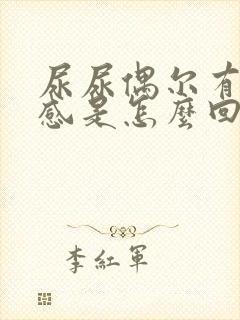 尿尿偶尔有
感是怎麼回
李紅軍